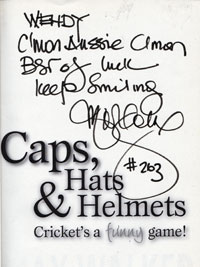 WENDY
C'mon Aussie C'mon
Best of luck
Keep Smiling
#263
Caps,
Hats
& Helmets
Cricket's a funny game!